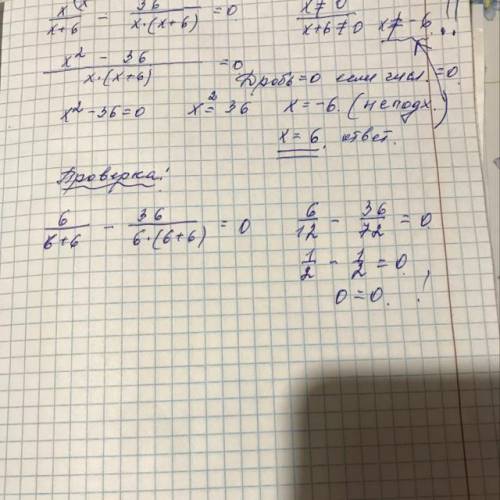 x^(x / (x+6) − 36 / (x·(x+6)) = 0    x≠0
x+6≠0    x≠−6 !!
(x² − 36) / (x·(x+6)) = 0
Дробь=0 если числ. =0.
x²−36=0    x²=36    x=−6. (неподх.)
x=6. ответ.
Проверка!
6 / (6+6) − 36 / (6·(6+6)) = 0    6/12 − 36/72 = 0
1/2 − 1/2 = 0
0=0. !